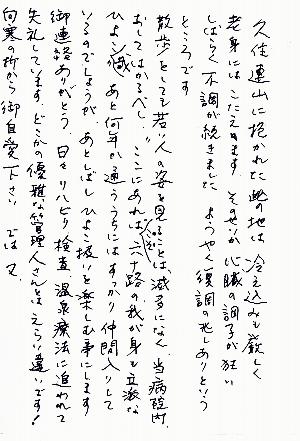 久住連山に抱かれた此の地は 冷え込みも厳しく
老身には こたえます そのせいか 心臓の調子が狂い
しばらく 不調が続きました ようやく 復調の兆しありという
ところです
散歩をしても若い人の姿を見ることは、滅多になく、当病院内
おしてはかるべし。ここにあれば、六十路の我が身も立派な
ひよこ あと何年か通ううちにはすっかり仲間入りして
いるのでしょうが、あとしばし ひよこ扱いを楽しむ事にします
御連絡ありがとう 日々リハビリ 検査 温泉療法に追われて
失礼しています。どこかの優雅な管理人さんとはえらい違いです!
向寒の折から 御自愛下さい では 又、